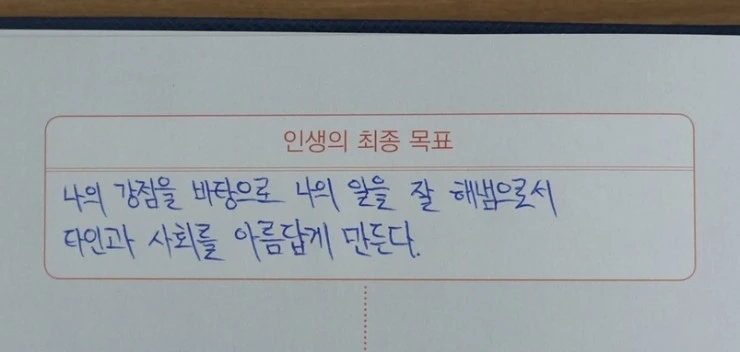 인생의 최종 목표
나의 강점을 바탕으로 나의 일을 잘 해냄으로서
타인과 사회를 아름답게 만든다.